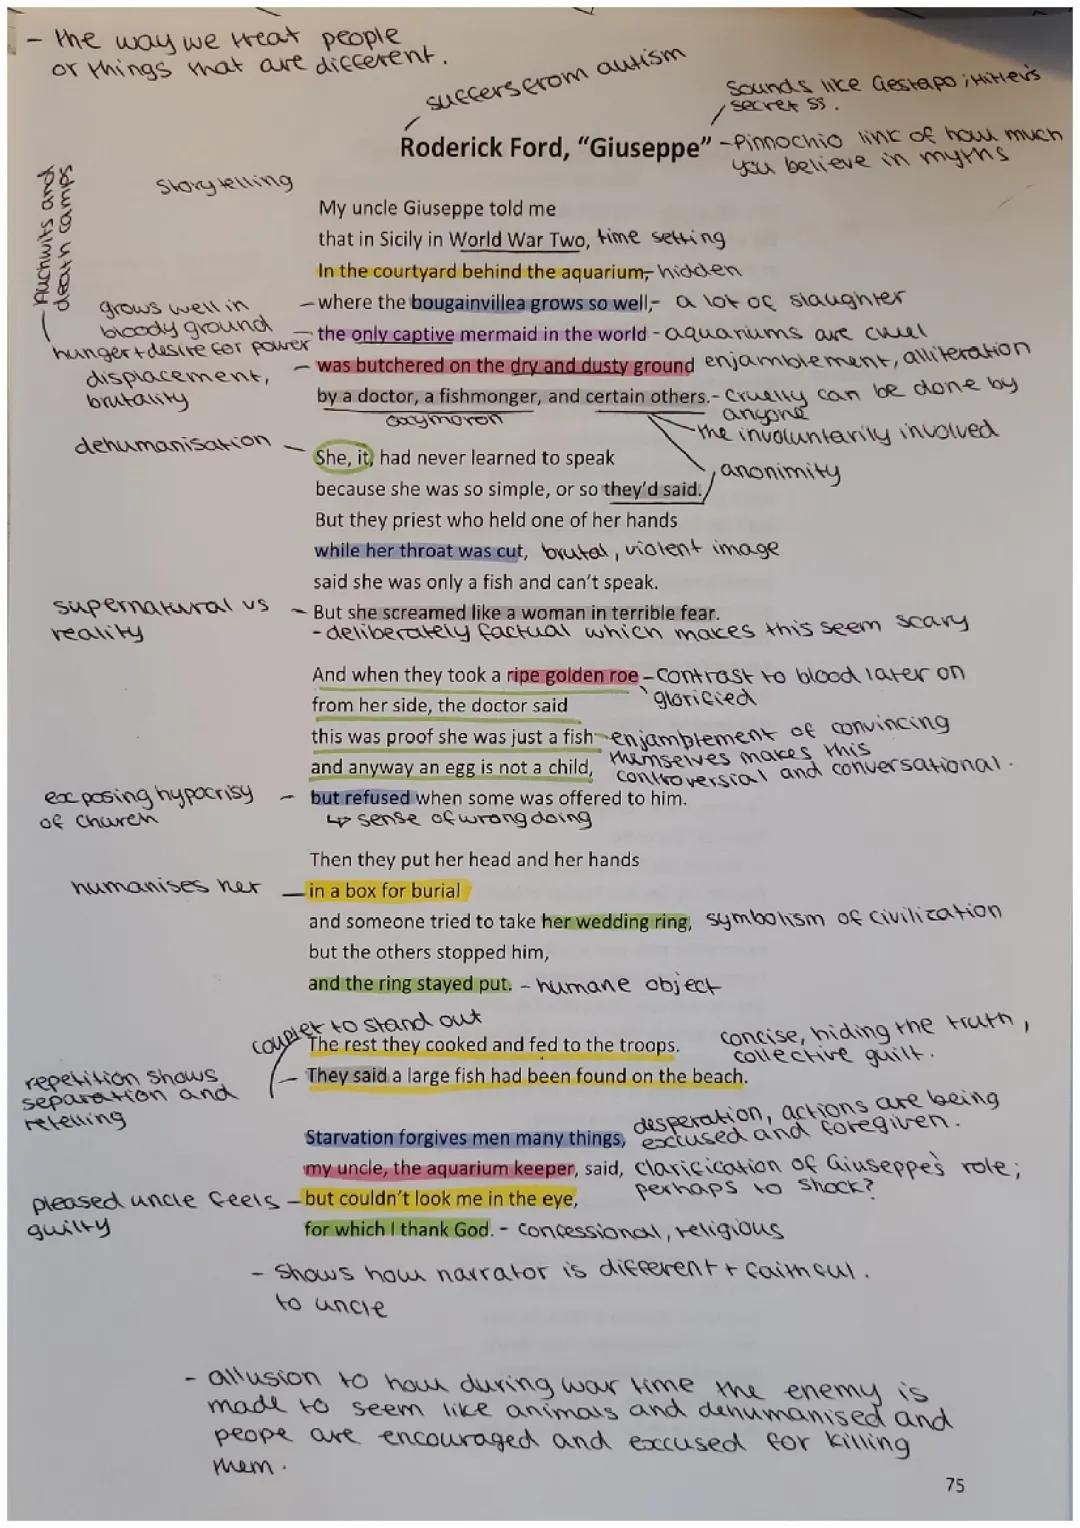 - the way we treat people
or things that are different.
suffers from autism
Sounds like Gestapo; Hitler's
secret SS.
Roderick Ford, "Giuseppe"
- Pinnochio link of how much
you believe in myths
Auchwits and
death camps
Storytelling
My uncle Giuseppe told me
that in Sicily in World War Two, time setting
In the courtyard behind the aquarium, - hidden
grows well in
bloody ground
- where the bougainvillea grows so well, - a lot of slaughter
hunger + desire for power
the only captive mermaid in the world - aquariums are cruel
displacement,
brutality
- was butchered on the dry and dusty ground enjamblement, alliteration
by a doctor, a fishmonger, and certain others. - Cruelty can be done by
anyone
oxymoron
- the involuntarily involved
dehumanisation
She, it, had never learned to speak
anonimity
because she was so simple, or so they'd said.
But they priest who held one of her hands
while her throat was cut, brutal, violent image
said she was only a fish and can't speak.
supernatural vs
reality
- But she screamed like a woman in terrible fear.
- deliberately factual which makes this seem scary
And when they took a ripe golden roe - contrast to blood later on
glorified
from her side, the doctor said
this was proof she was just a fish - enjamblement of convincing
themselves makes this
controversial and conversational.
and anyway an egg is not a child,
exposing hypocrisy
of church
- but refused when some was offered to him.
↳ sense of wrongdoing
Then they put her head and her hands
humanises her
- in a box for burial
and someone tried to take her wedding ring, symbolism of civilization
but the others stopped him,
and the ring stayed put. - humane object
couplet to stand out
The rest they cooked and fed to the troops.
concise, hiding the truth,
collective guilt.
repetition shows
separation and
retelling
- They said a large fish had been found on the beach.
Starvation forgives men many things,
desperation, actions are being
excused and foregiven.
my uncle, the aquarium keeper, said, clarification of Giuseppe's role;
perhaps to shock?
pleased uncle feels
guilty
- but couldn't look me in the eye,
for which I thank God. - confessional, religious
- shows how narrator is different + faithful.
to uncle
- allusion to how during war time the enemy is
made to seem like animals and dehumanised and
peope are encouraged and excused for killing
them.
75